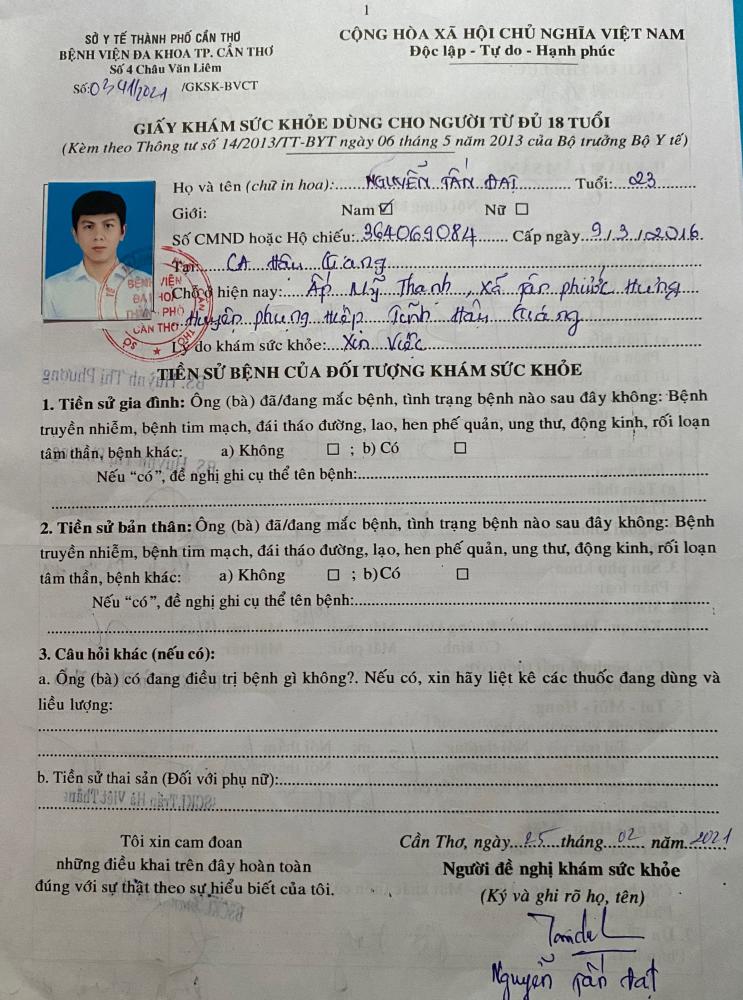 1
SỞ Y TẾ THÀNH PHỐ CẦN THƠ
BỆNH VIỆN ĐA KHOA TP. CẦN THƠ
Số 4 Châu Văn Liêm
Số: 0341/2021 /GKSK-BVCT
CỘNG HÒA XÃ HỘI CHỦ NGHĨA VIỆT NAM
Độc lập - Tự do - Hạnh phúc
GIẤY KHÁM SỨC KHỎE DÙNG CHO NGƯỜI TỪ ĐỦ 18 TUỔI
(Kèm theo Thông tư số 14/2013/TT-BYT ngày 06 tháng 5 năm 2013 của Bộ trưởng Bộ Y tế)
Họ và tên (chữ in hoa):......NGUYỄN TẤN ĐẠT......... Tuổi:...23.........
Giới: Nam ☑ Nữ ☐
Số CMND hoặc Hộ chiếu:.364069084....... Cấp ngày..9./.3../..2016.
Tại:.....CA Hậu Giang.....
Chỗ ở hiện nay:.....Ấp Mỹ Thạnh, Xã Tân phước Hưng
Huyện phụng Hiệp Tỉnh Hậu Giang
Lý do khám sức khỏe:...Xin Việc
BỆNH VIỆN
ĐA KHOA
THÀNH PHỐ
CẦN THƠ
TIỀN SỬ BỆNH CỦA ĐỐI TƯỢNG KHÁM SỨC KHỎE
BS. Huỳnh Thị Phương
1. Tiền sử gia đình: Ông (bà) đã/đang mắc bệnh, tình trạng bệnh nào sau đây không: Bệnh
truyền nhiễm, bệnh tim mạch, đái tháo đường, lao, hen phế quản, ung thư, động kinh, rối loạn
tâm thần, bệnh khác: a) Không ☐ ; b) Có ☐
Nếu “có”, đề nghị ghi cụ thể tên bệnh:
2. Tiền sử bản thân: Ông (bà) đã/đang mắc bệnh, tình trạng bệnh nào sau đây không: Bệnh
truyền nhiễm, bệnh tim mạch, đái tháo đường, lạo, hen phế quản, ung thư, động kinh, rối loạn
tâm thần, bệnh khác: a) Không ☐ ; b) Có ☐
Nếu “có”, đề nghị ghi cụ thể tên bệnh:
3. Câu hỏi khác (nếu có):
a. Ông (bà) có đang điều trị bệnh gì không?. Nếu có, xin hãy liệt kê các thuốc đang dùng và
liều lượng:
b. Tiền sử thai sản (Đối với phụ nữ):
BSCKI.Trần Hà Việt Thắng
Tôi xin cam đoan
những điều khai trên đây hoàn toàn
đúng với sự thật theo sự hiểu biết của tôi.
Cần Thơ, ngày...25....tháng...02... năm.2021
Người đề nghị khám sức khỏe
(Ký và ghi rõ họ, tên)
Nguyễn Tấn Đạt